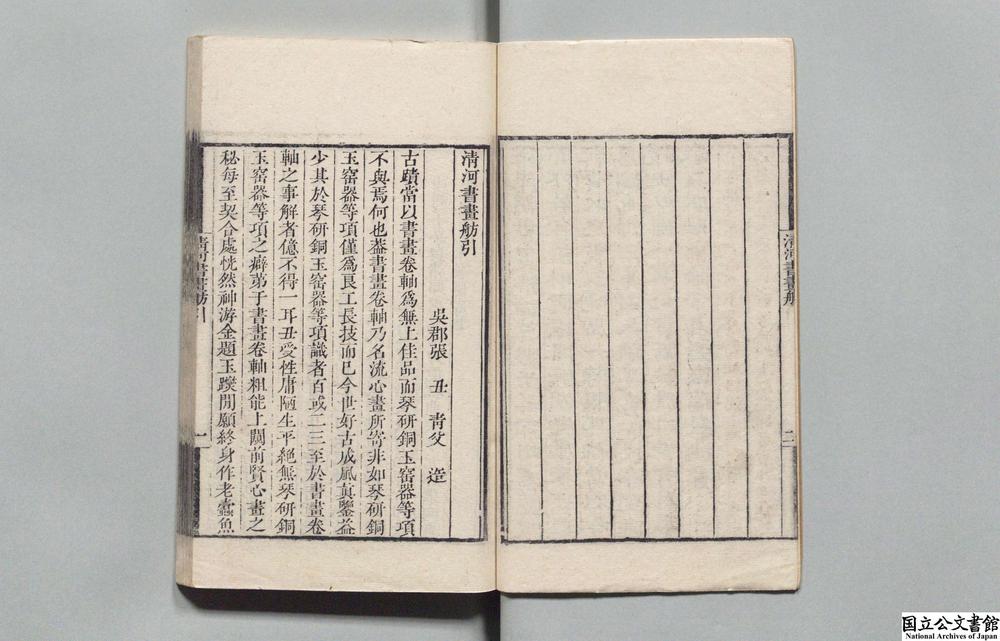 清河書畫舫
二
清河書畫舫引
吳郡張　丑　青父　造
古蹟當以書畫卷軸爲無上佳品而琴研銅玉窑器等項
不與焉何也葢書畫卷軸乃名流心畫所寄非如琴研銅
玉窑器等項僅爲良工長技而已今世好古成風眞鑒益
少其於琴研銅玉窑器等項識者百或二三至於書畫卷
軸之事解者億不得一耳丑受性庸陋生平絕無琴研銅
玉窑器等項之癖苐于書畫卷軸粗能上闚前賢心畫之
秘每至契合處恍然神游金題玉躞間願終身作老蠹魚
清河書畫舫引
一
国立公文書館
National Archives of Japan